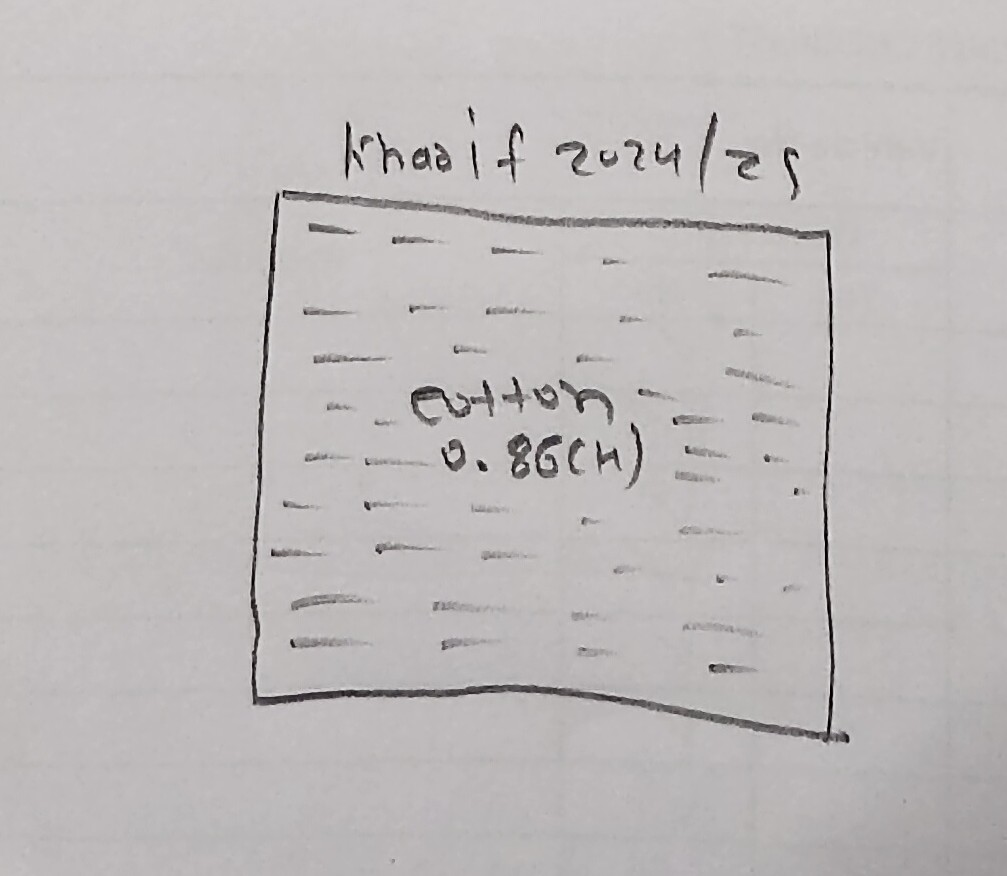 Kharif 2024/25
cotton
0.86(H)